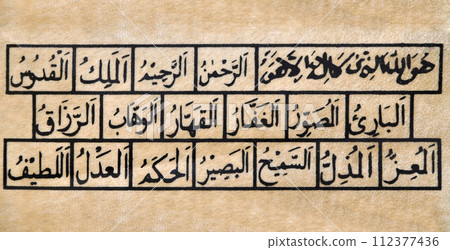 هو الله الذي لا إله إلا هو اَلرَّحْمٰنُ اَلرَّحِيْمُ اَلْمَلِكُ اَلْقُدُّوْسُ
اَلْبَارِئُ اَلْمُصَوِّرُ اَلْغَفَّارُ اَلْقَهَّارُ اَلْوَهَّابُ اَلرَّزَّاقُ
اَلْمُعِزُّ اَلْمُذِلُّ اَلسَّمِيْعُ اَلْبَصِيْرُ اَلْحَكَمُ اَلْعَدْلُ اَللَّطِيْفُ
112377436